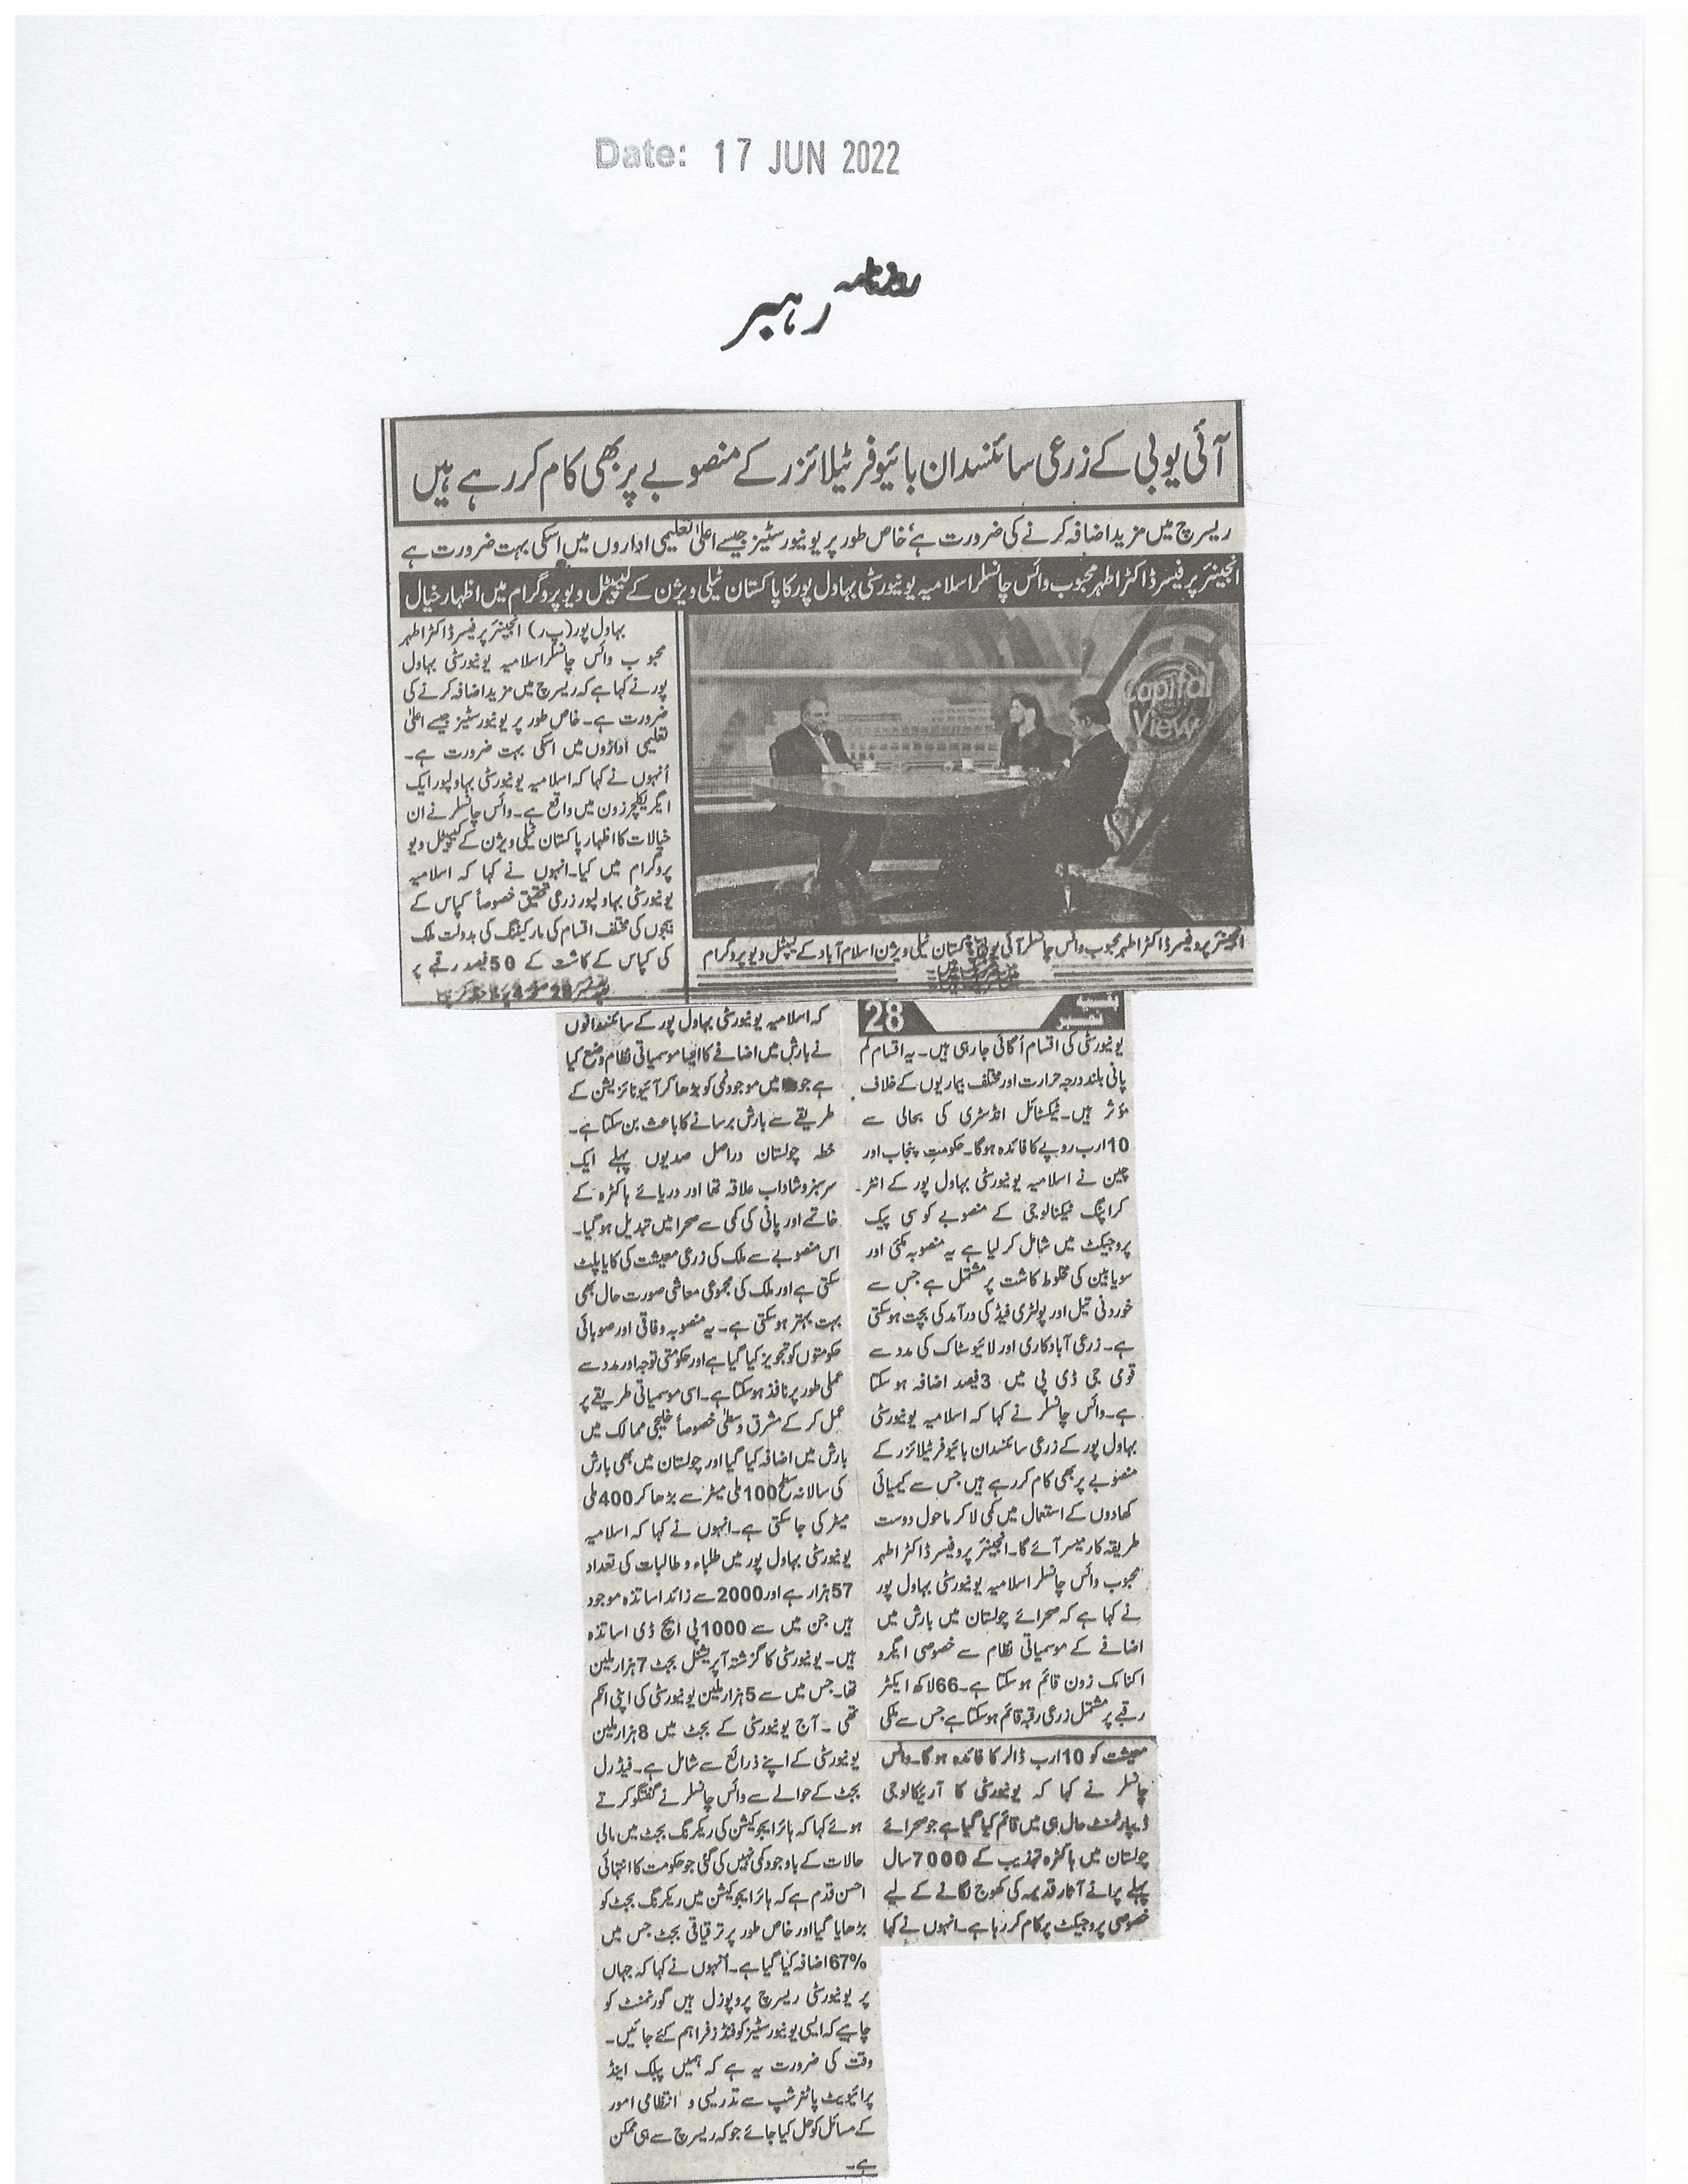 Date: 17 JUN 2022
روزنامہ رہبر
آئی یو بی کے زرعی سائنسدان بائیو فرٹیلائزر کے منصوبے پر بھی کام کر رہے ہیں
ریسرچ میں مزید اضافہ کرنے کی ضرورت ہے، خاص طور پر یونیورسٹیز جیسے اعلیٰ تعلیمی اداروں میں اسکی بہت ضرورت ہے
انجینئر پرفیسر ڈاکٹر اطہر محبوب وائس چانسلر اسلامیہ یونیورسٹی بہاول پور کا پاکستان ٹیلی ویژن کے کیپیٹل ویو پروگرام میں اظہار خیال
Capital
View
انجینئر پروفیسر ڈاکٹر اطہر محبوب وائس چانسلر آئی یو بی پاکستان ٹیلی ویژن اسلام آباد کے کیپٹل ویو پروگرام
میں شریک ہیں۔
بہاول پور (پ ر) انجینئر پرفیسر ڈاکٹر اطہر
محبوب وائس چانسلر اسلامیہ یونیورسٹی بہاول
پور نے کہا ہے کہ ریسرچ میں مزید اضافہ کرنے کی
ضرورت ہے۔ خاص طور پر یونیورسٹیز جیسے اعلیٰ
تعلیمی اداروں میں اسکی بہت ضرورت ہے۔
اُنہوں نے کہا کہ اسلامیہ یونیورسٹی بہاولپور ایک
ایگریکلچر زون میں واقع ہے۔ وائس چانسلر نے ان
خیالات کا اظہار پاکستان ٹیلی ویژن کے کیپٹل ویو
پروگرام میں کیا۔ انہوں نے کہا کہ اسلامیہ
یونیورسٹی بہاولپور زرعی تحقیق خصوصاً کپاس کے
بیجوں کی مختلف اقسام کی مارکیٹنگ کی بدولت ملک
کی کپاس کے کاشت کے 50 فیصد رقبے پر
بقیہ نمبر 28
بقیہ نمبر 28
یونیورسٹی کی اقسام اُگائی جا رہی ہیں۔ یہ اقسام کم
پانی بلند درجہ حرارت اور مختلف بیماریوں کے خلاف
مؤثر ہیں۔ ٹیکسٹائل انڈسٹری کی بحالی سے
10 ارب روپے کا فائدہ ہوگا۔ حکومتِ پنجاب اور
چین نے اسلامیہ یونیورسٹی بہاول پور کے انٹر۔
کراپنگ ٹیکنالوجی کے منصوبے کو سی پیک
پروجیکٹ میں شامل کر لیا ہے یہ منصوبہ مکئی اور
سویا بین کی مخلوط کاشت پر مشتمل ہے جس سے
خوردنی تیل اور پولٹری فیڈ کی درآمد کی بچت ہو سکتی
ہے۔ زرعی آباد کاری اور لائیو سٹاک کی مدد سے
قومی جی ڈی پی میں 3 فیصد اضافہ ہو سکتا
ہے۔ وائس چانسلر نے کہا کہ اسلامیہ یونیورسٹی
بہاول پور کے زرعی سائنسدان بائیو فرٹیلائزر کے
منصوبے پر بھی کام کر رہے ہیں جس سے کیمیائی
کھادوں کے استعمال میں کمی لا کر ماحول دوست
طریقہ کار میسر آئے گا۔ انجینئر پروفیسر ڈاکٹر اطہر
محبوب وائس چانسلر اسلامیہ یونیورسٹی بہاول پور
نے کہا ہے کہ صحرائے چولستان میں بارش میں
اضافے کے موسمیاتی نظام سے خصوصی ایگرو
اکنامک زون قائم ہو سکتا ہے۔ 66 لاکھ ایکٹر
رقبے پر مشتمل زرعی رقبہ قائم ہو سکتا ہے جس سے ملکی
معیشت کو 10 ارب ڈالر کا فائدہ ہوگا۔ وائس
چانسلر نے کہا کہ یونیورسٹی کا آرکیالوجی
ڈیپارٹمنٹ حال ہی میں قائم کیا گیا ہے جو صحرائے
چولستان میں ہاکڑہ تہذیب کے 7000 سال
پہلے پرانے آثار قدیمہ کی کھوج لگانے کے لیے
خصوصی پروجیکٹ پر کام کر رہا ہے۔ انہوں نے کہا
کہ اسلامیہ یونیورسٹی بہاول پور کے سائنسدانوں
نے بارش میں اضافے کا ایسا موسمیاتی نظام وضع کیا
ہے جو میں موجود نمی کو بڑھا کر آئیونائزیشن کے
طریقے سے بارش برسانے کا باعث بن سکتا ہے۔
خطہ چولستان دراصل صدیوں پہلے ایک
سرسبز و شاداب علاقہ تھا اور دریائے ہاکڑہ کے
خاتمے اور پانی کی کمی سے صحرا میں تبدیل ہو گیا۔
اس منصوبے سے ملک کی زرعی معیشت کی کایا پلٹ
سکتی ہے اور ملک کی مجموعی معاشی صورت حال بھی
بہت بہتر ہو سکتی ہے۔ یہ منصوبہ وفاقی اور صوبائی
حکومتوں کو تجویز کیا گیا ہے اور حکومتی توجہ اور مدد سے
عملی طور پر نافذ ہو سکتا ہے۔ اسی موسمیاتی طریقے پر
عمل کر کے مشرق وسطیٰ خصوصاً خلیجی ممالک میں
بارش میں اضافہ کیا گیا اور چولستان میں بھی بارش
کی سالانہ سطح 100 ملی میٹر سے بڑھا کر 400 ملی
میٹر کی جا سکتی ہے۔ انہوں نے کہا کہ اسلامیہ
یونیورسٹی بہاول پور میں طلباء و طالبات کی تعداد
57 ہزار ہے اور 2000 سے زائد اساتذہ موجود
ہیں جن میں سے 1000 پی ایچ ڈی اساتذہ
ہیں۔ یونیورسٹی کا گزشتہ آپریشنل بجٹ 7 ہزار ملین
تھا۔ جس میں سے 5 ہزار ملین یونیورسٹی کی اپنی انکم
تھی ۔ آج یونیورسٹی کے بجٹ میں 8 ہزار ملین
یونیورسٹی کے اپنے ذرائع سے شامل ہے۔ فیڈرل
بجٹ کے حوالے سے وائس چانسلر نے گفتگو کرتے
ہوئے کہا کہ ہائر ایجوکیشن کی ریکرنگ بجٹ میں مالی
حالات کے باوجود کمی نہیں کی گئی جو حکومت کا انتہائی
احسن قدم ہے کہ ہائر ایجوکیشن میں ریکرنگ بجٹ کو
بڑھایا گیا اور خاص طور پر ترقیاتی بجٹ جس میں
67% اضافہ کیا گیا ہے۔ اُنہوں نے کہا کہ جہاں
پر یونیورسٹی ریسرچ پروپوزل ہیں گورنمنٹ کو
چاہیے کہ ایسی یونیورسٹیز کو فنڈز فراہم کئے جائیں۔
وقت کی ضرورت یہ ہے کہ ہمیں پبلک اینڈ
پرائیویٹ پاٹنرشپ سے تدریسی و انتظامی امور
کے مسائل کو حل کیا جائے جو کہ ریسرچ سے ہی ممکن
ہے۔